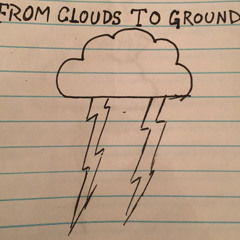 FROM CLOUDS TO GROUND